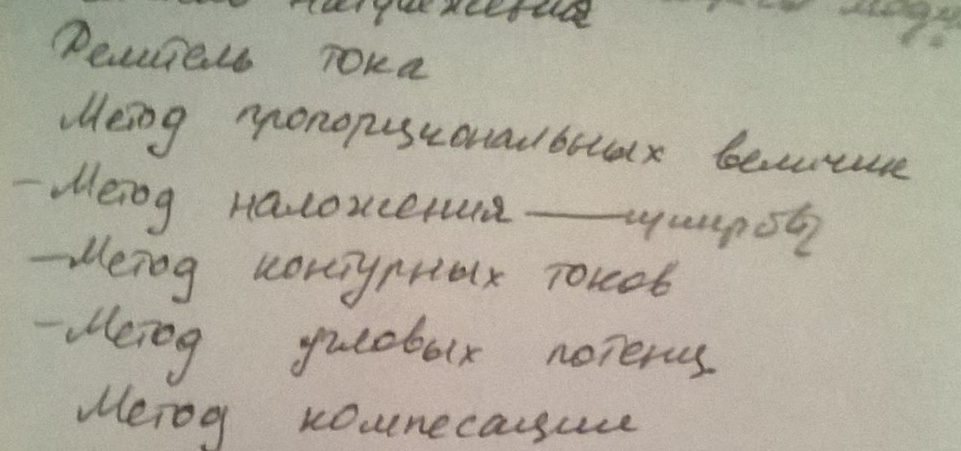 напряжения
Делитель тока
Метод пропорциональных величин
- Метод наложения —
- Метод контурных токов
- Метод узловых потенц.
Метод компесации